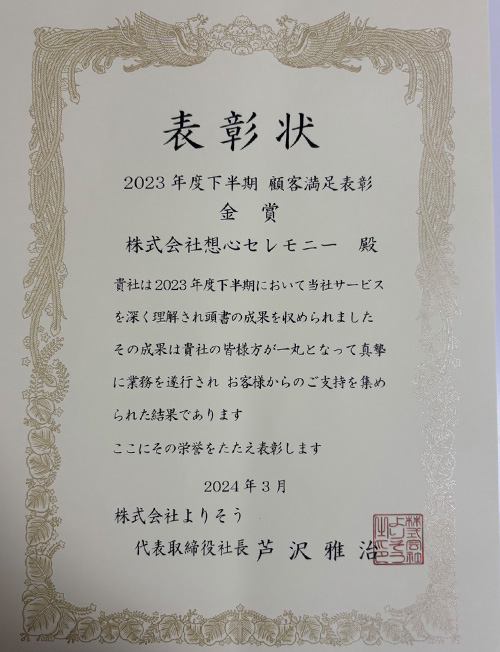 表彰状
2023年度下半期 顧客満足表彰
金 賞
株式会社想心セレモニー 殿
貴社は2023年度下半期において当社サービス
を深く理解され頭書の成果を収められました
その成果は貴社の皆様方が一丸となって真摯
に業務を遂行され お客様からのご支持を集め
られた結果であります
ここにその栄誉をたたえ表彰します
2024年3月
株式会社よりそう
代表取締役社長 芦沢雅治
株式会社
よりそう
之印